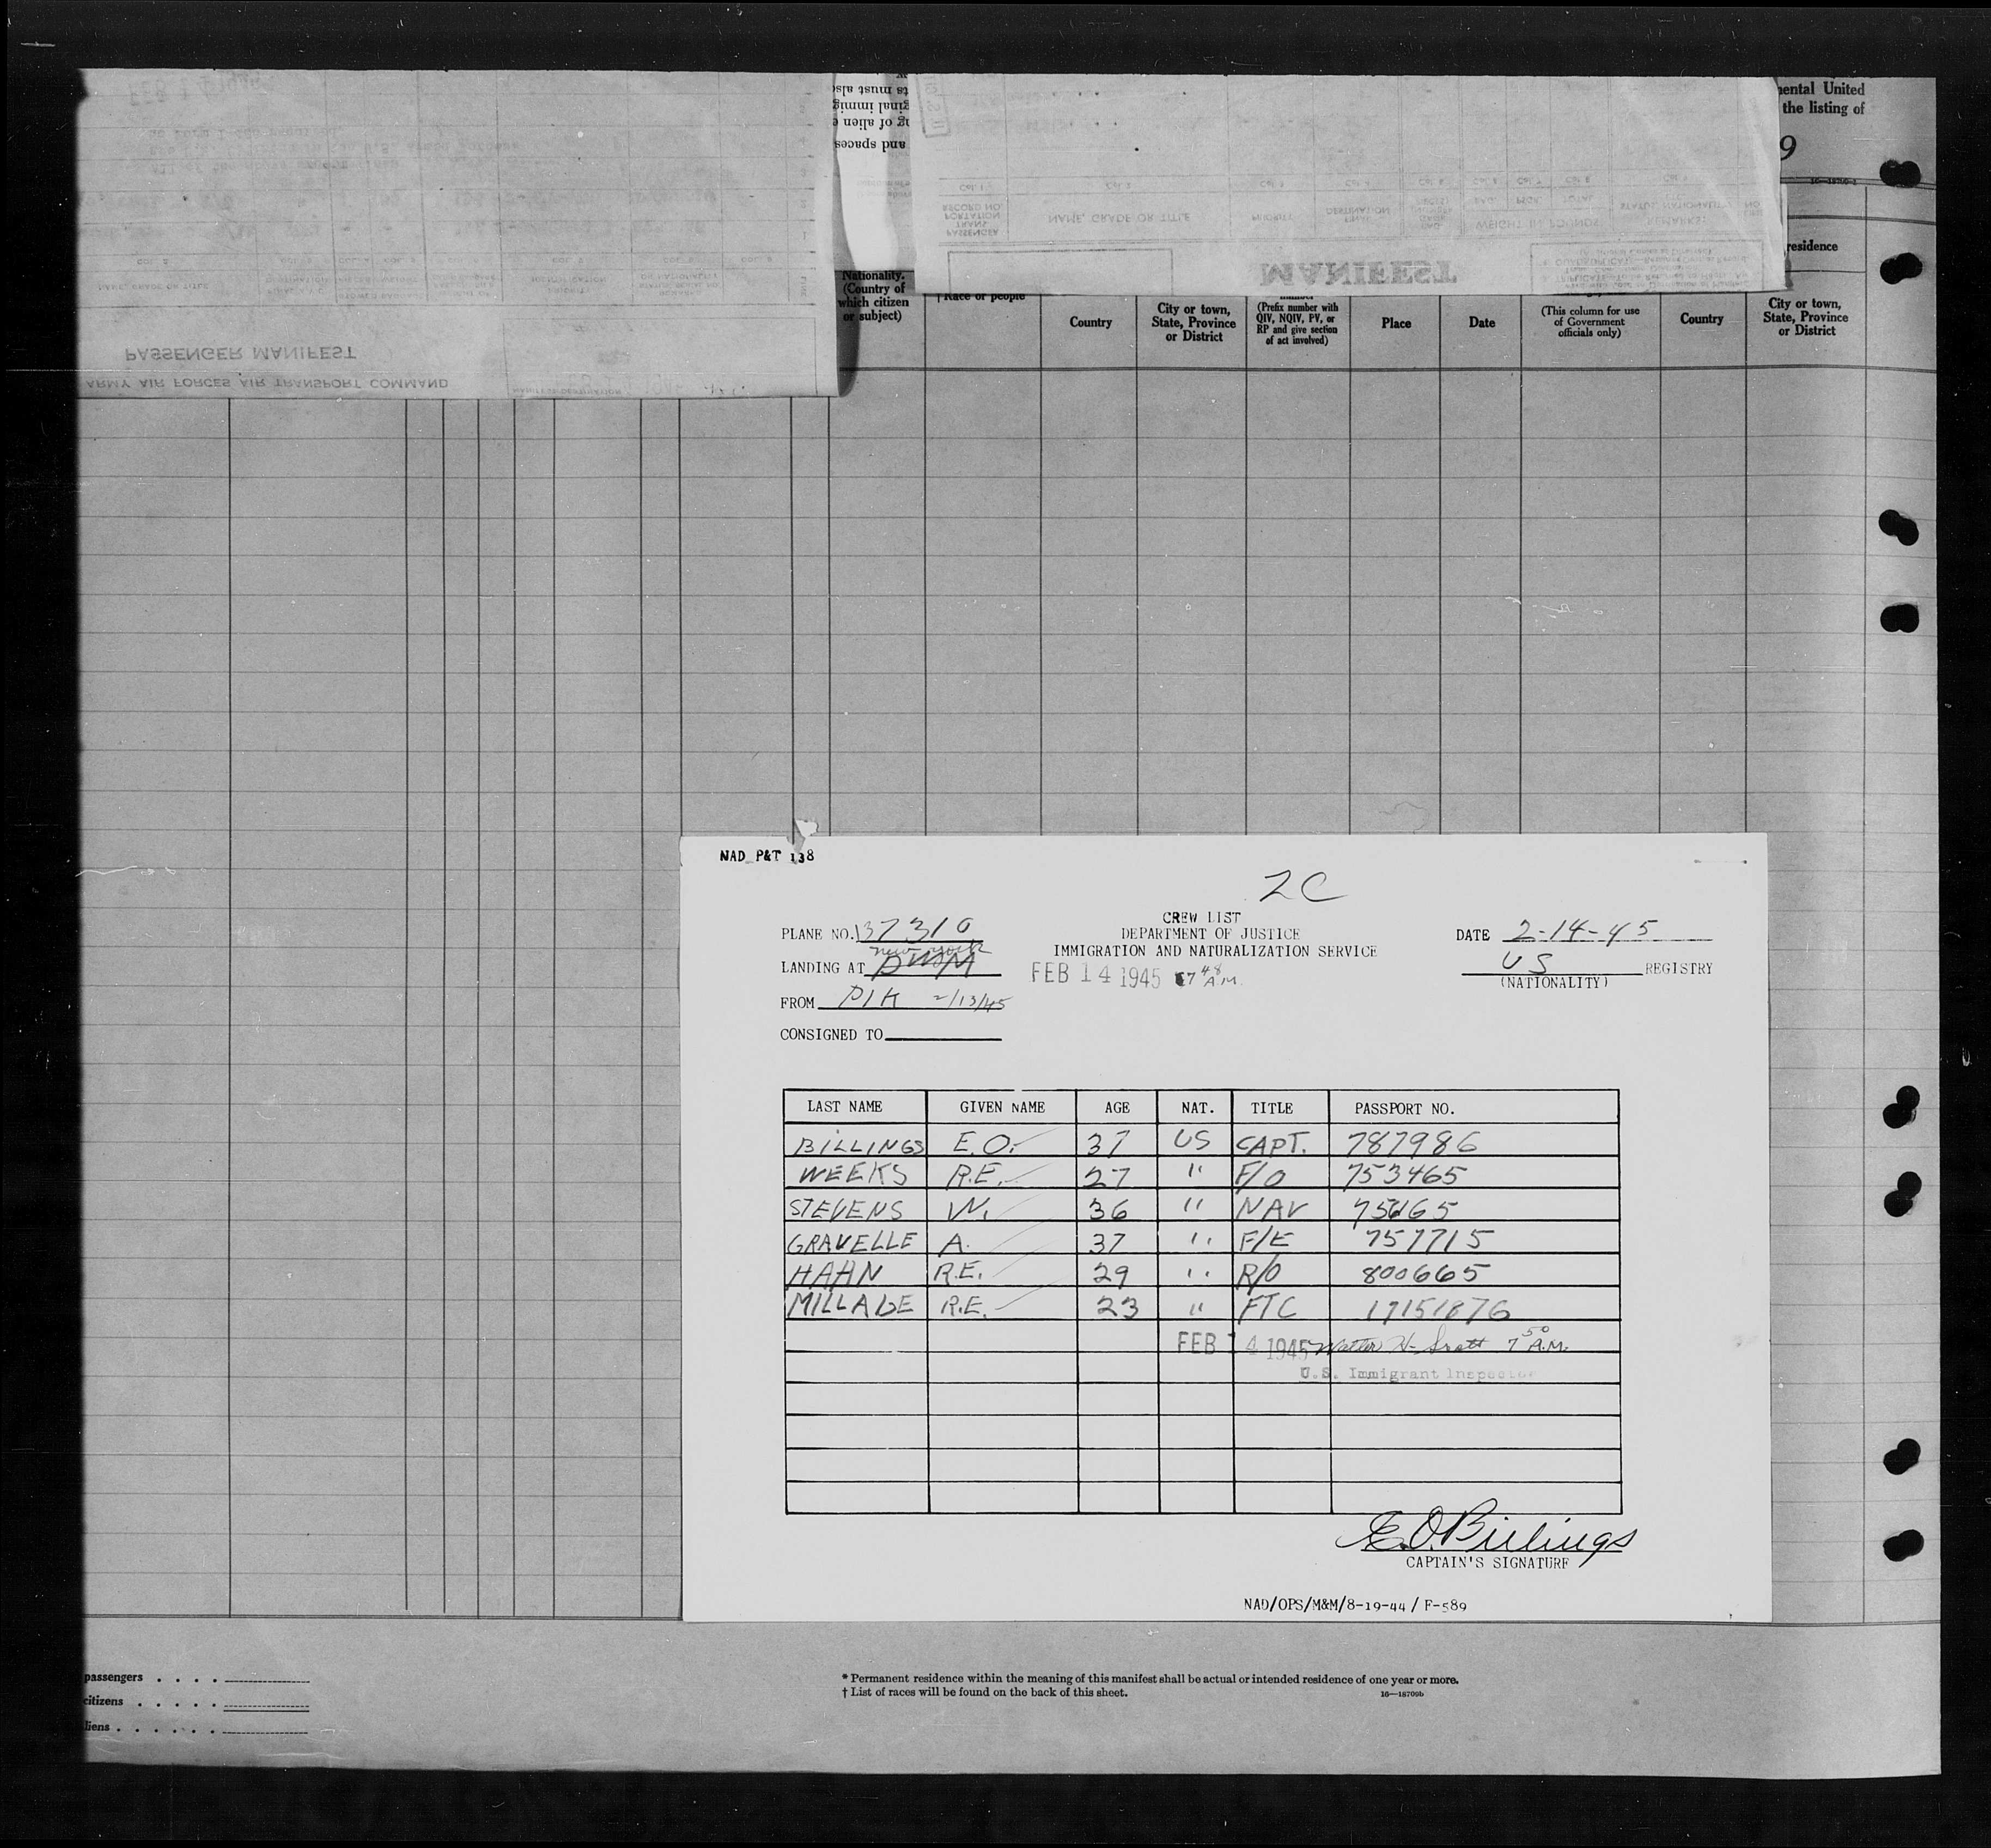 ental United
the listing of
9
ts must also
ginal immig
g of alien e
and spaces
MANIFEST
NAME, GRADE OR TITLE
PRIORITY
WEIGHT IN POUNDS
PASSENGER MANIFEST
ARMY AIR FORCES AIR TRANSPORT COMMAND
Nationality.
(Country of
which citizen
or subject)
† Race or people
Country
City or town,
State, Province
or District
(Prefix number with
QIV, NQIV, PV, or
RP and give section
of act involved)
Place
Date
(This column for use
of Government
officials only)
residence
Country
City or town,
State, Province
or District
NAD P&T 138
2C
CREW LIST
DEPARTMENT OF JUSTICE
IMMIGRATION AND NATURALIZATION SERVICE
PLANE NO. 137310
DATE 2-14-45
New York
LANDING AT
FEB 14 1945 7 48 A.M.
US REGISTRY
(NATIONALITY)
FROM PIK 2/13/45
CONSIGNED TO
LAST NAME GIVEN NAME AGE NAT. TITLE PASSPORT NO.
BILLINGS E.O. 37 US CAPT. 787986
WEEKS R.E. 27 " F/O 753465
STEVENS W. 36 " NAV
GRAVELLE A. 37 " F/E 757715
HAHN R.E. 29 " R/O 800665
R.E. 23 " FTC 17151876
FEB 14 1945 Walter H. Scott 7 50 A.M.
U.S. Immigrant Inspector
E.O. Billings
CAPTAIN'S SIGNATURE
NAD/OPS/M&M/8-19-44 / F-589
passengers . . . .
citizens . . . . .
liens . . . . . .
* Permanent residence within the meaning of this manifest shall be actual or intended residence of one year or more.
† List of races will be found on the back of this sheet.
16—18709b